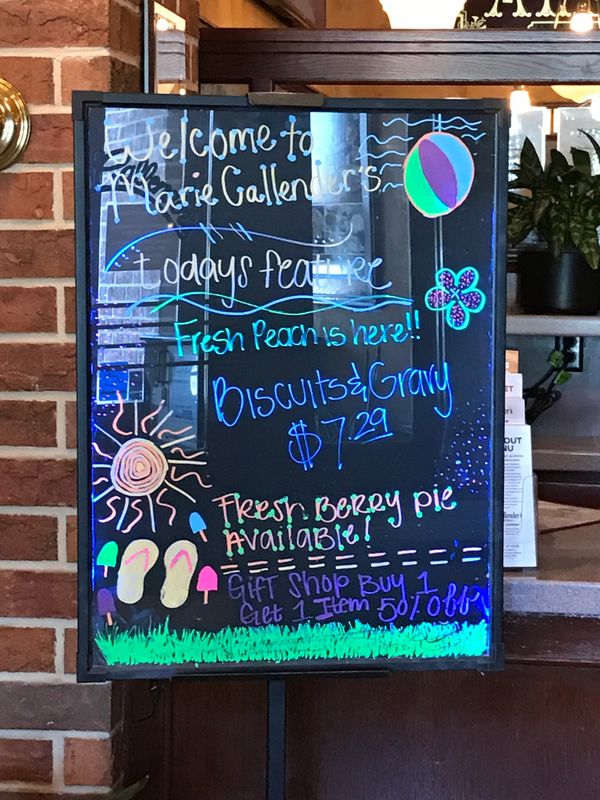 Welcome to
Marie Callender's
todays feature
Fresh Peach is here!!
Biscuits & Gravy
$7.29
Fresh Berry pie
Available!
Gift Shop Buy 1
Get 1 Item 50% Off